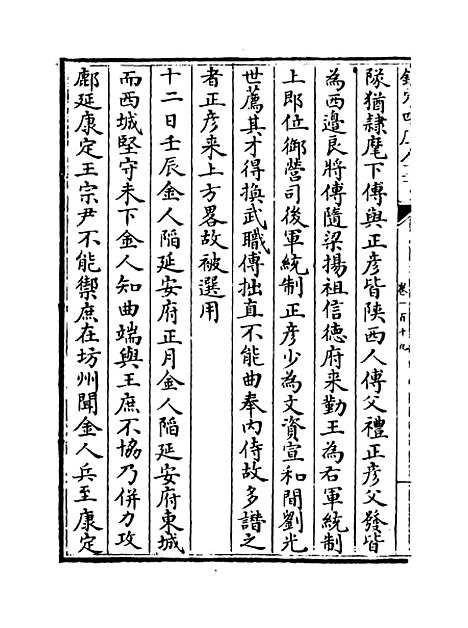 欽定四庫全書
卷一百十九
隊猶隸麾下傅與正彦皆陝西人傅父禮正彦父發皆
為西邊良將傅隨梁揚祖信德府来勤王為右軍統制
上即位御營司後軍統制正彦少為文資宣和間劉光
世薦其才得換武職傅拙直不能曲奉内侍故多譖之
者正彦来上方畧故被選用
十二日壬辰金人陥延安府正月金人陥延安府東城
而西城堅守未下金人知曲端與王庶不協乃併力攻
鄜延康定王宗尹不能禦庶在坊州聞金人兵至康定